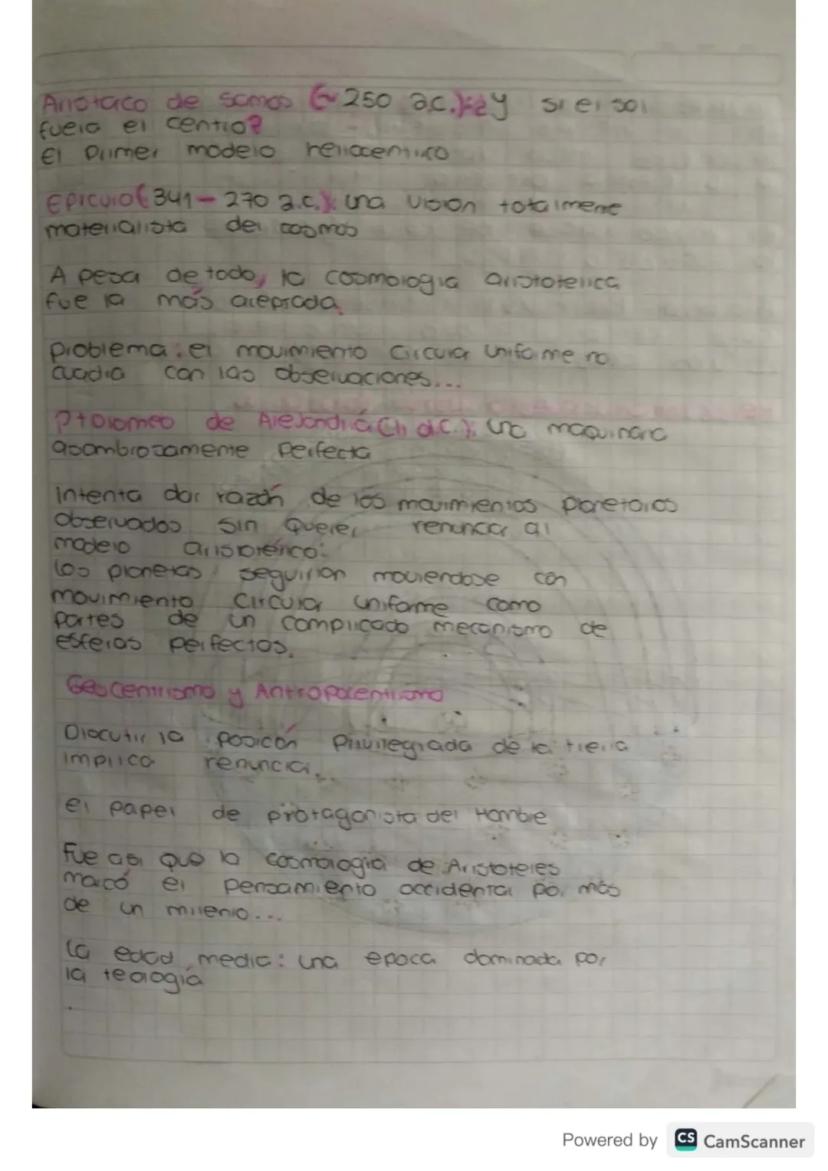 Aristaco de samos (~250 a.c.): ¿y si el sol
fuera el centro?
El primer modelo heliocentrico
Epicuro (341-270 a.c.): una vision totalmente
materialista del cosmos
A pesa de todo, la cosmologia aristotelica
fue la más aceptada.
Problema: el movimiento circular uniforme no
cuadia con las observaciones...
Ptolomeo de Alejandría (h d.C.): una maquinaria
asombrosamente perfecta
Intenta dar razón de los movimientos planetarios
observados sin querer renunciar al
modelo aristotélico:
los planetas seguirian moviendose con
movimiento circular uniforme como
partes de un complicado mecanismo de
esferas perfectos.
Geocentrismo y Antropocentrismo
Discutir la posicón privilegiada de la tierra
implica renuncia...
el papel de protagonista del Hombre
Fue asi que la cosmologia de Aristoteles
marcó el pensamiento occidental por más
de un milenio...
la edad media: una epoca dominada por
la teología
Powered by CS CamScanner